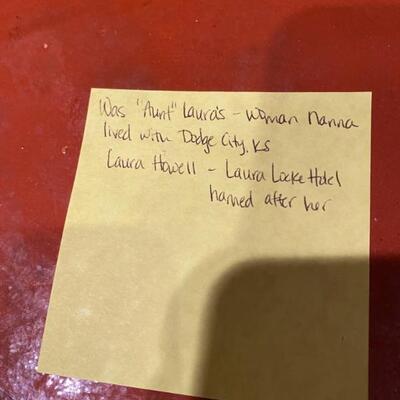 Was "Aunt" Laura's - woman Nanna
lived with Dodge City, KS
Laura Howell - Laura Locke Hotel
named after her